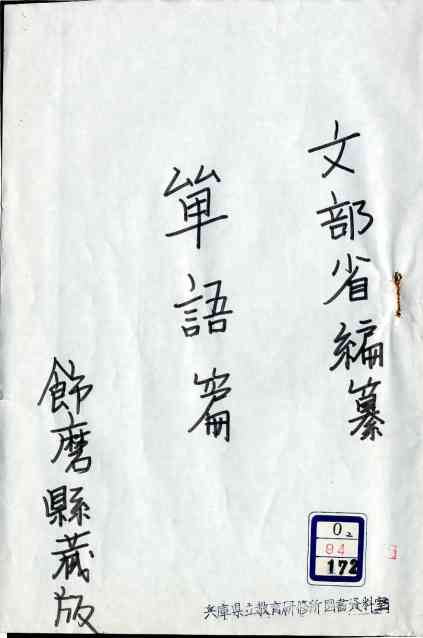 文部省編纂
單語篇
飾磨縣蔵版
O2
94
172
兵庫県立教育研修所図書資料室